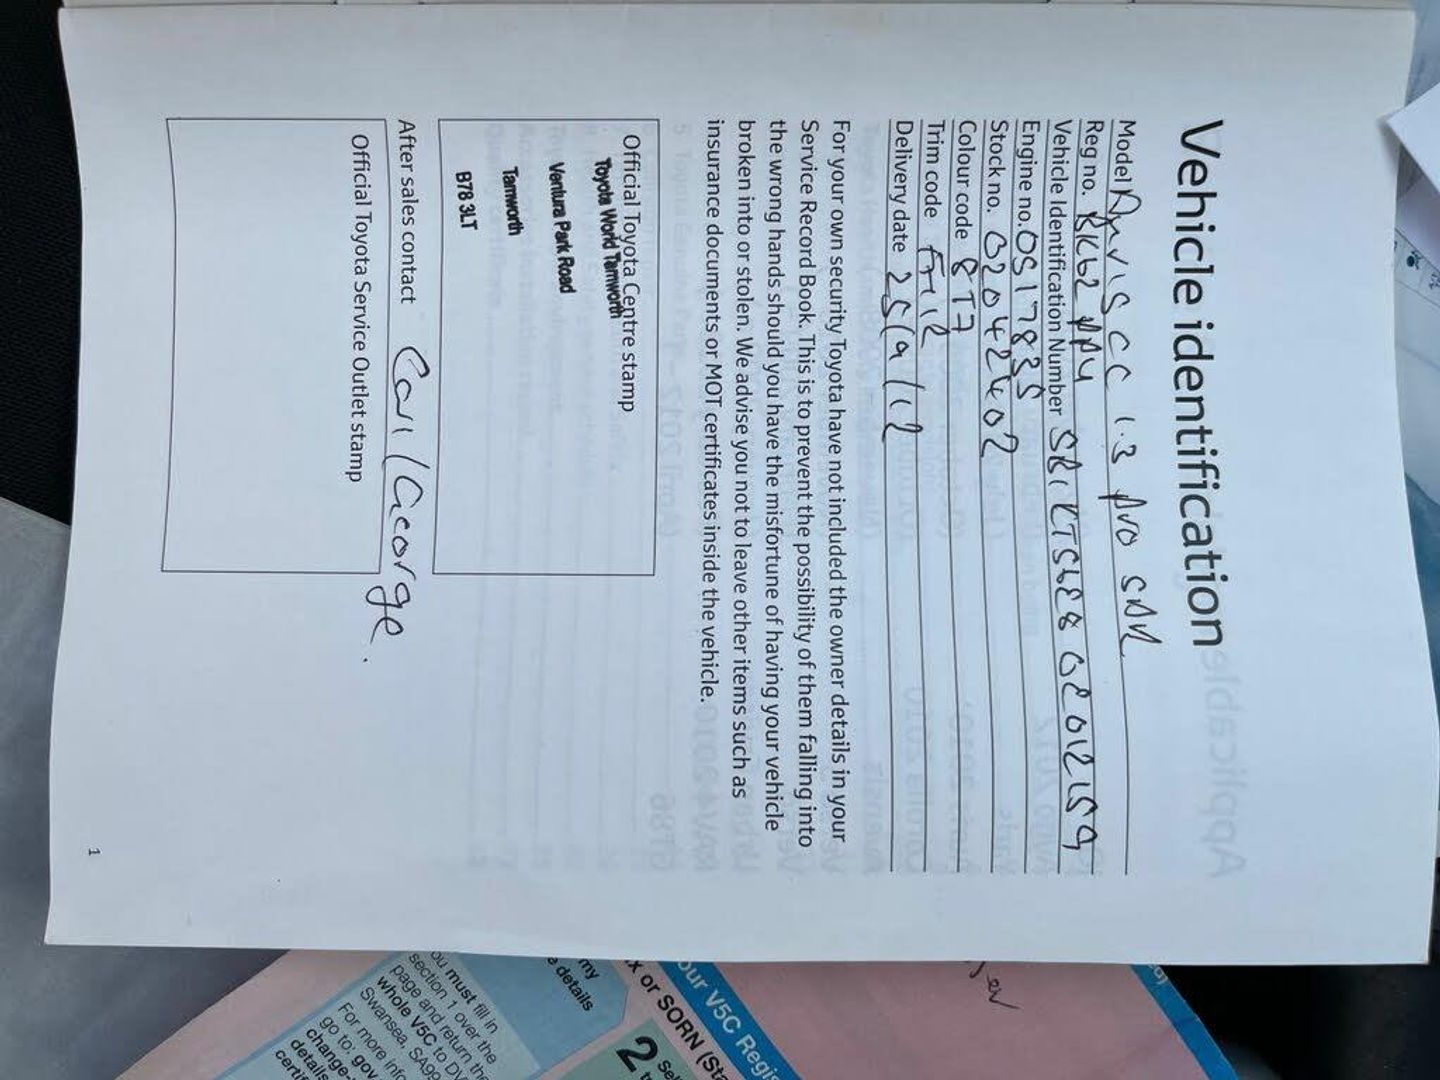 Vehicle identification
Model Avris CC 1.3 AVO SAR
Reg no. RK62
Vehicle Identification Number
Engine no. 0S17835
Stock no. 02042402
Colour code 8T7
Trim code
Delivery date 25/9/12
For your own security Toyota have not included the owner details in your
Service Record Book. This is to prevent the possibility of them falling into
the wrong hands should you have the misfortune of having your vehicle
broken into or stolen. We advise you not to leave other items such as
insurance documents or MOT certificates inside the vehicle.
Official Toyota Centre stamp
Toyota World Tamworth
Ventura Park Road
Tamworth
B78 3LT
After sales contact Carl George.
Official Toyota Service Outlet stamp
1
our V5C Regis
x or SORN (Sta
2
my
e details
ou must fill in
section 1 over the
page and return the
whole V5C to DV
Swansea, SA99
For more info
go to: gov
change-
details
certif